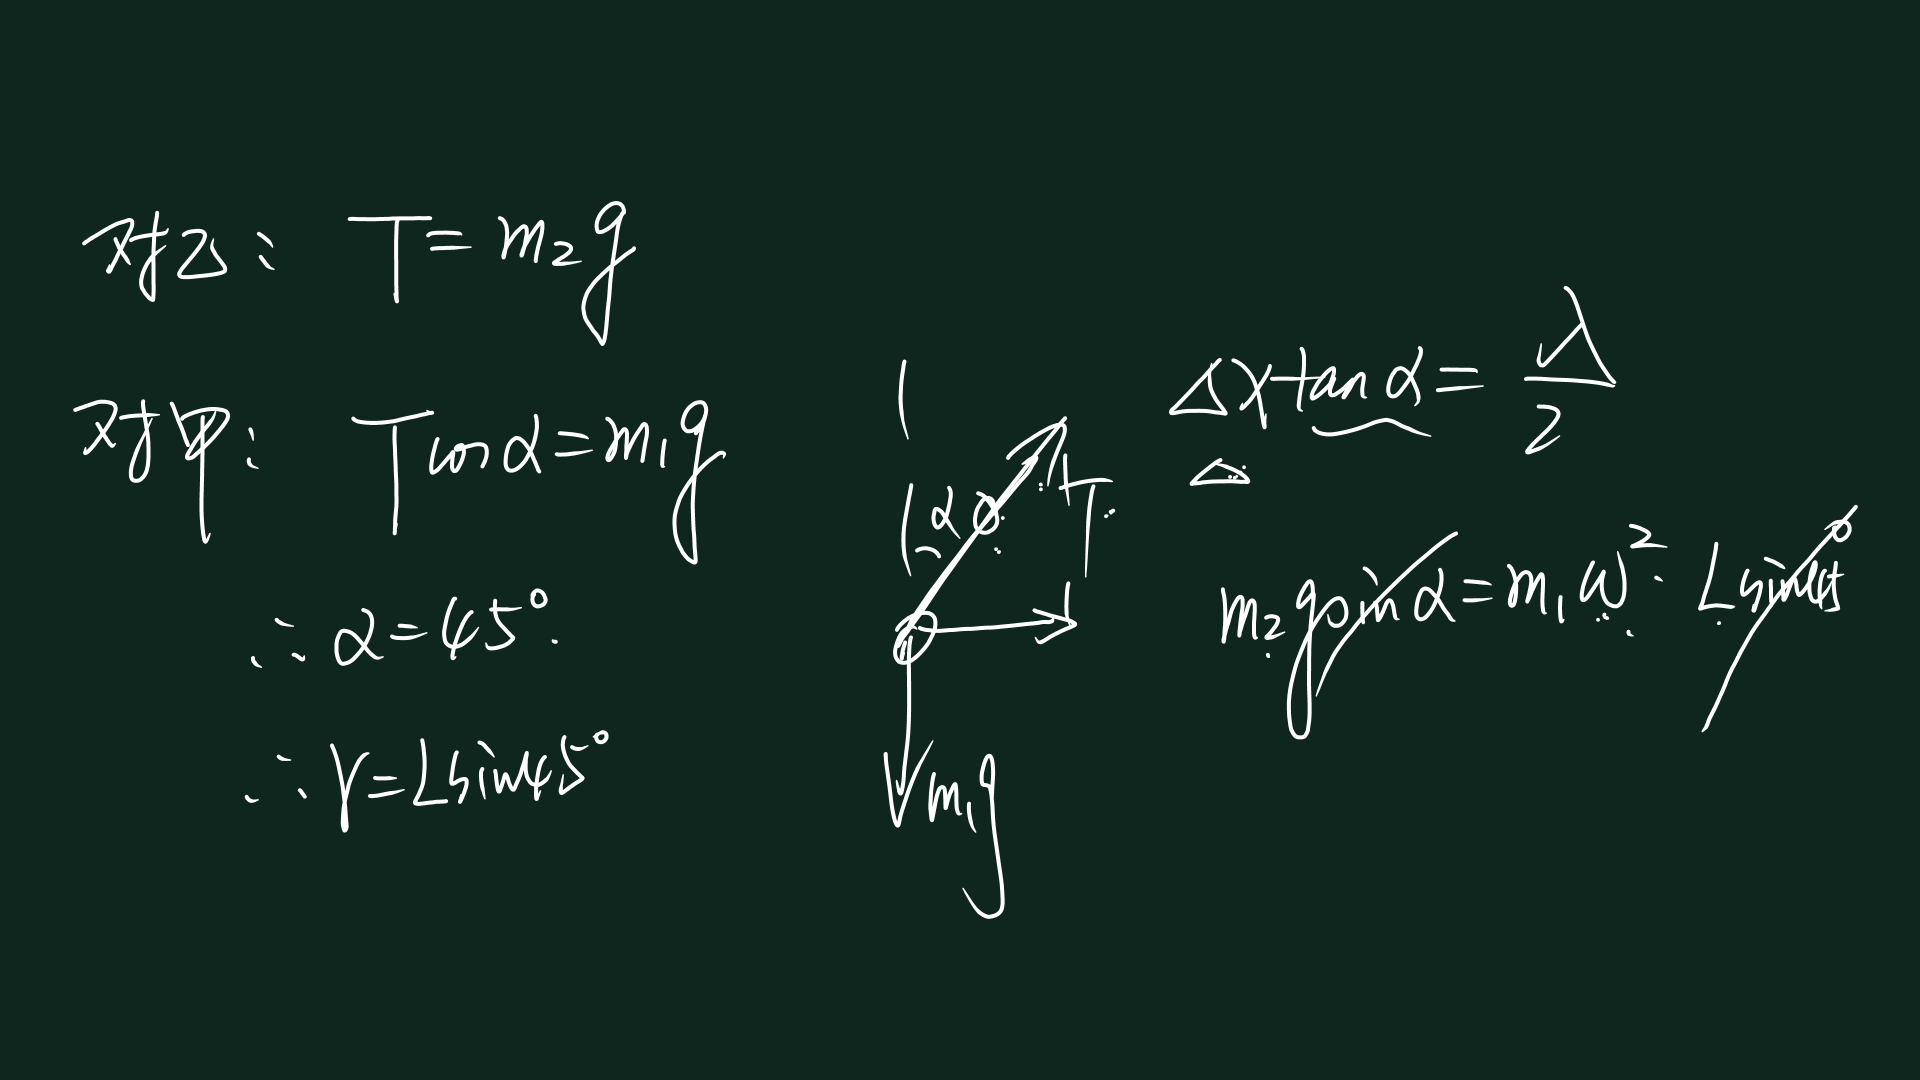 对乙: T = m₂g
对甲: Tcosα = m₁g
∴ α = 45°.
∴ r = Lsin45°
α
T
m₁g
Δx tanα = λ/2
m₂g sinα = m₁ω²·Lsin45°